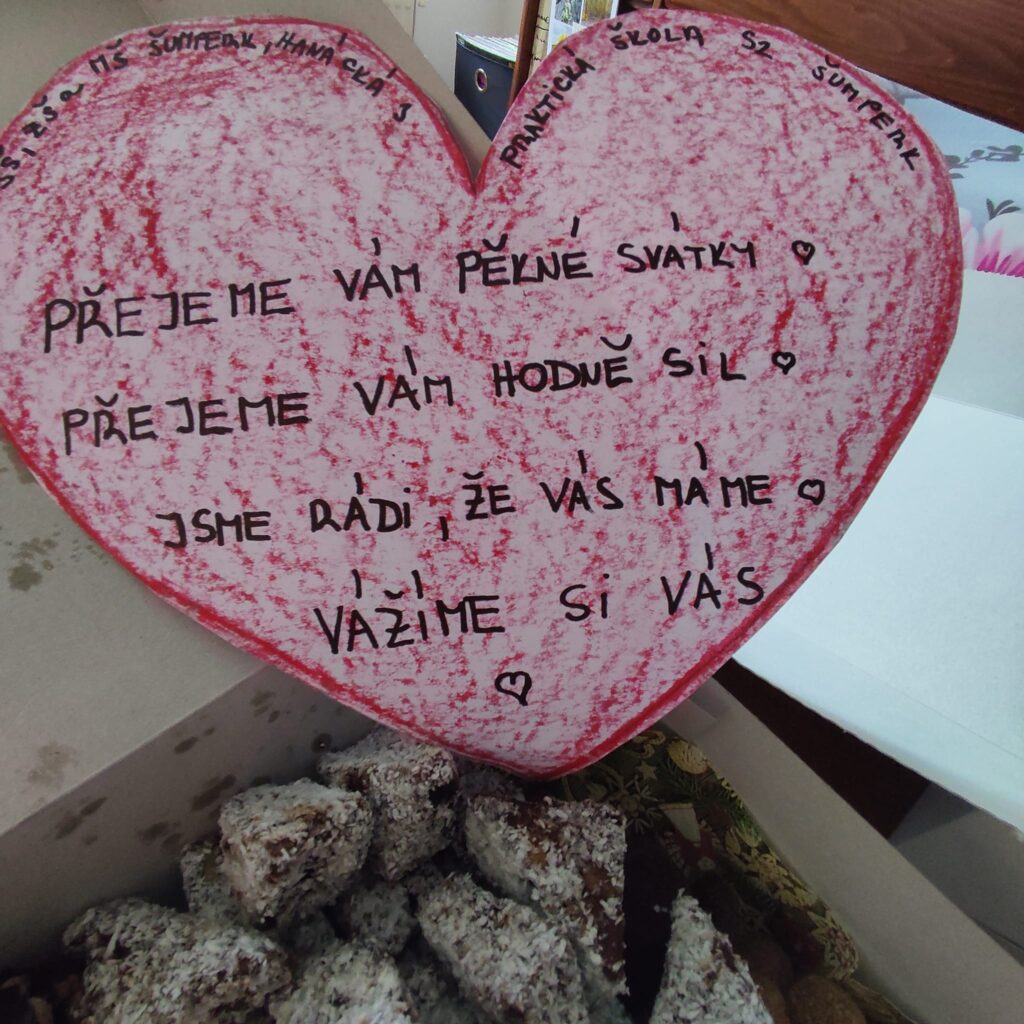 SŠ, ZŠ a MŠ ŠUMPERK, HANÁCKÁ 3
PRAKTICKÁ ŠKOLA SZ ŠUMPERK
PŘEJEME VÁM PĚKNÉ SVÁTKY
PŘEJEME VÁM HODNĚ SiL
JSME RÁDi, ŽE VÁS MÁME
VÁŽÍME Si VÁS